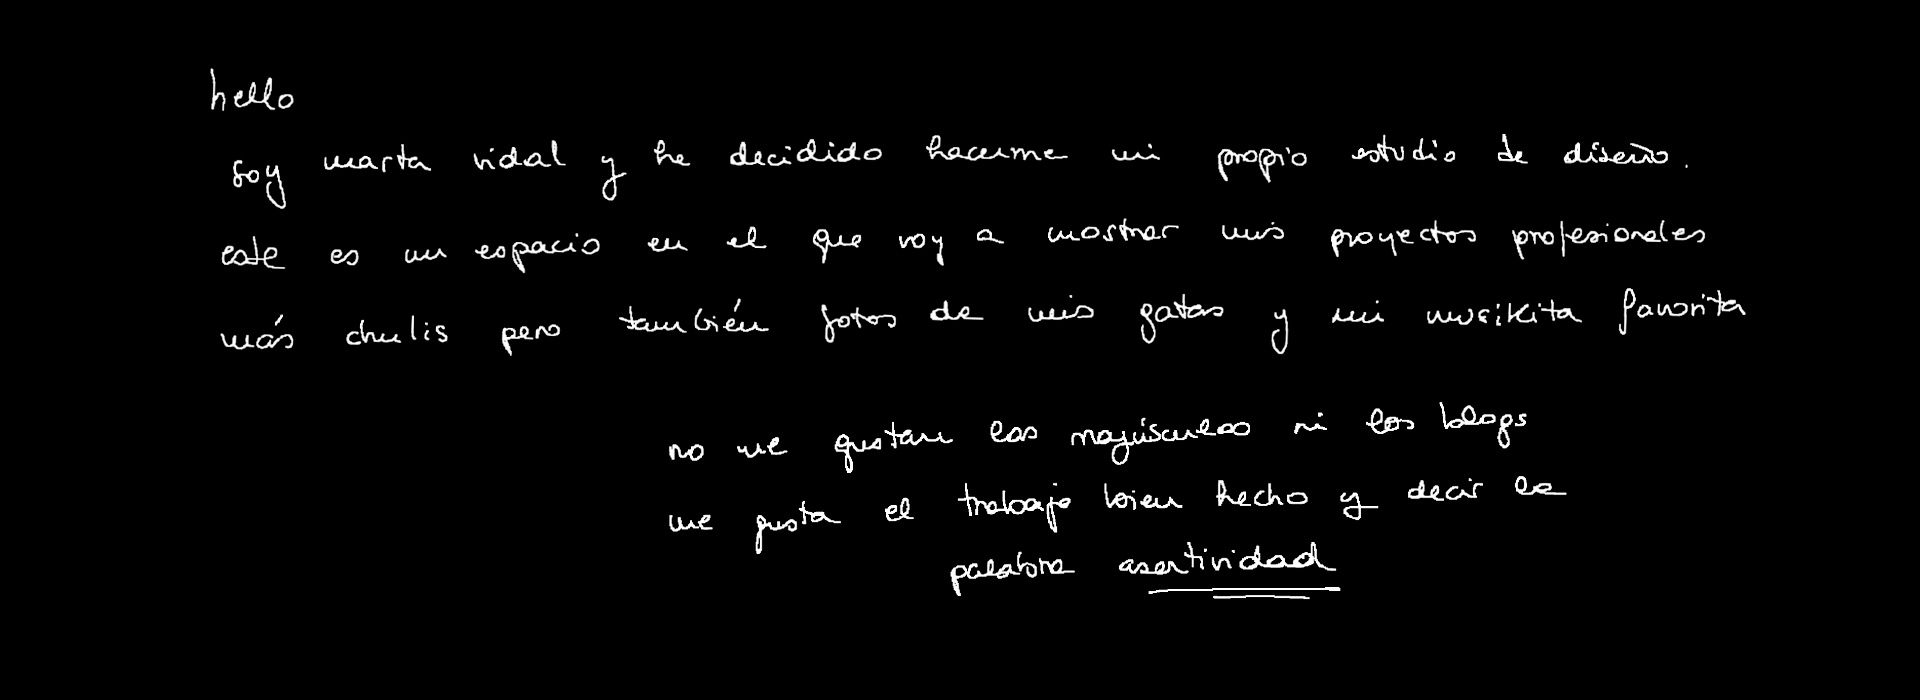 hello
soy marta vidal y he decidido hacerme mi propio estudio de diseño.
este es un espacio en el que voy a mostrar mis proyectos profesionales
más chulis pero también fotos de mis gatas y mi musikita favorita
no me gustan las mayúsculas ni los blogs
me gusta el trabajo bien hecho y decir la
palabra asertividad